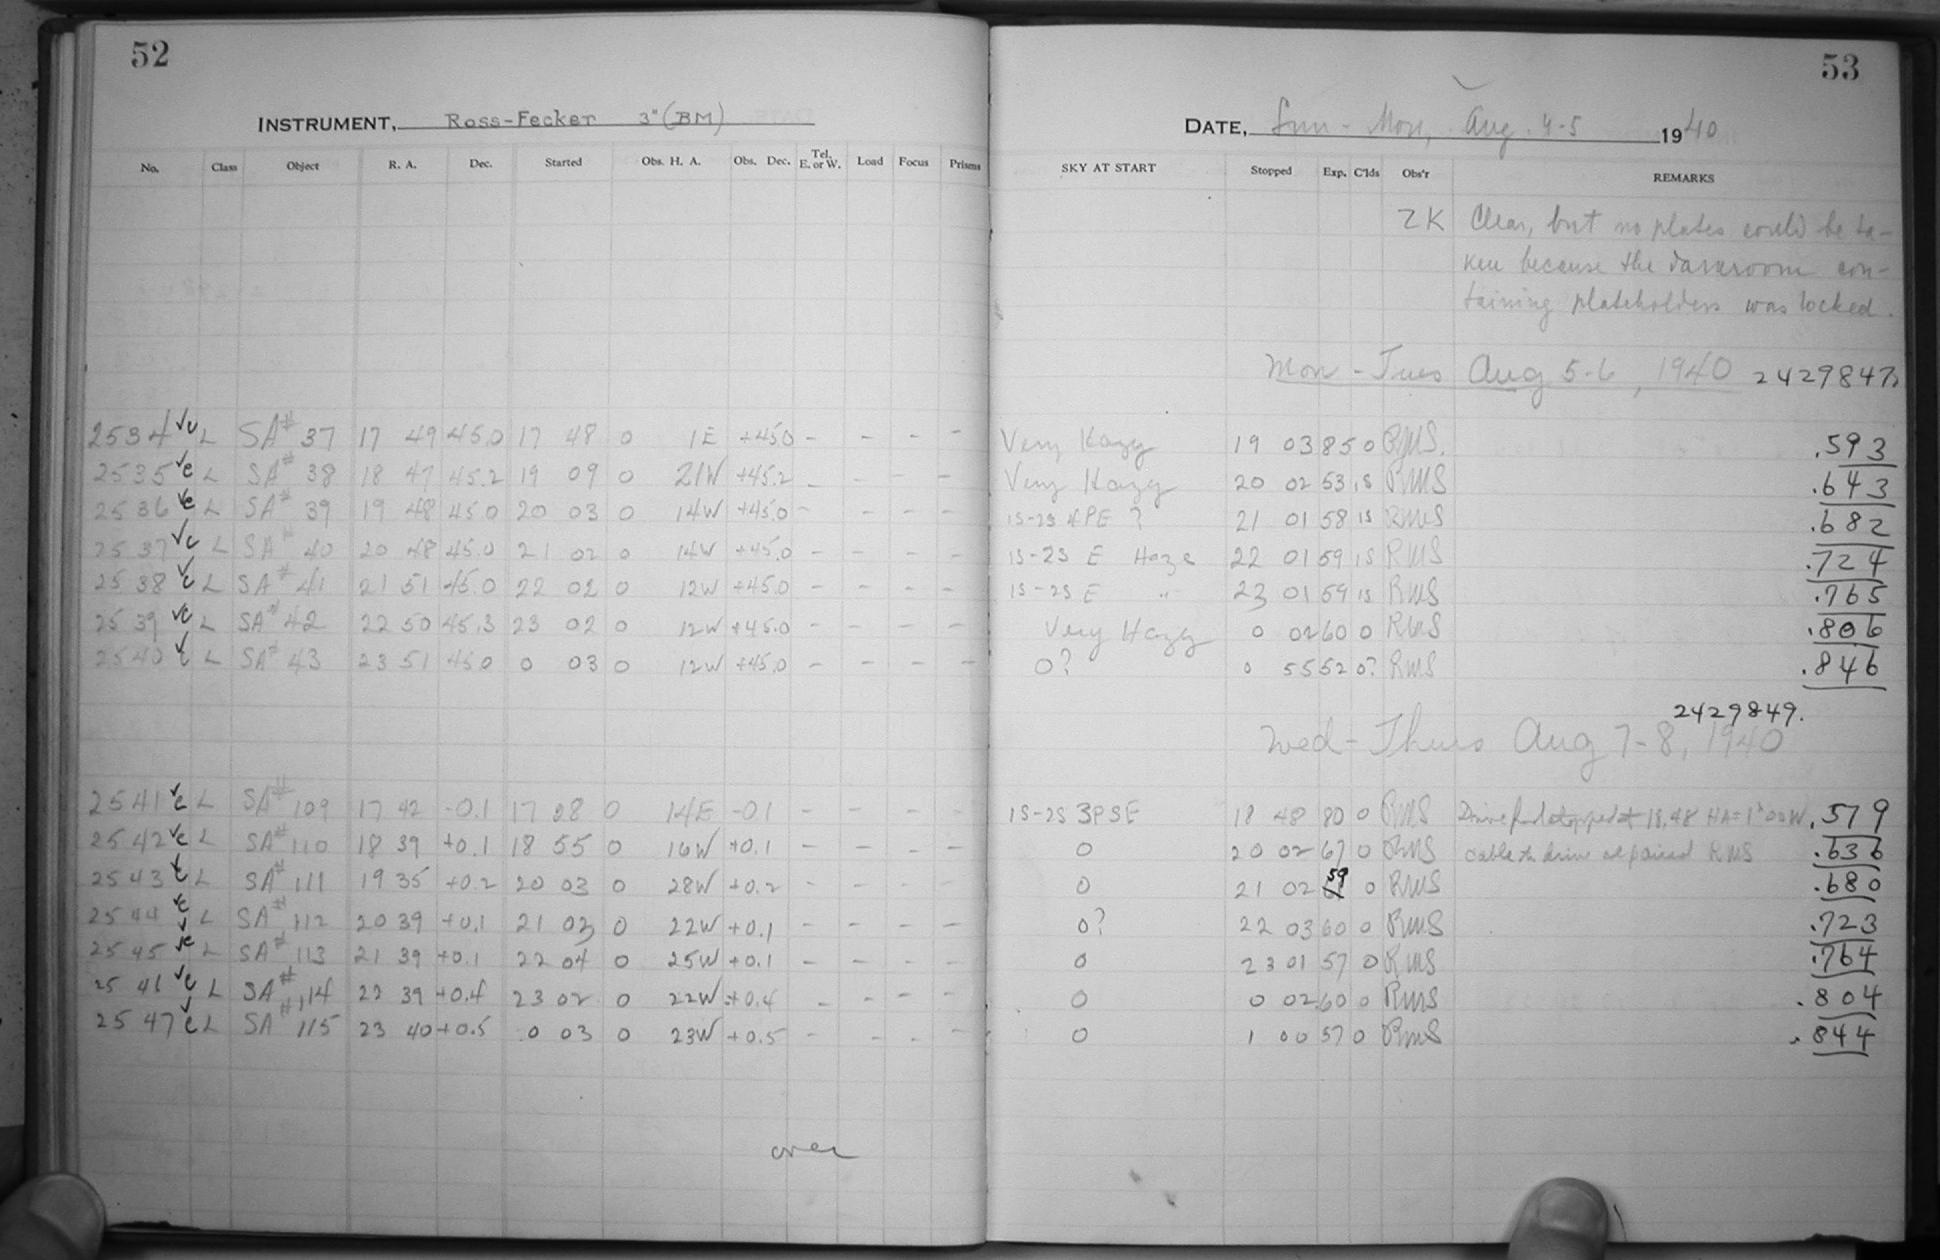 52
INSTRUMENT, Ross-Fecker 3" (BM)
No. Class Object R. A. Dec. Started Obs. H. A. Obs. Dec. Tel. E. or W. Load Focus Prisms
2534 L SA# 37 17 49 45.0 17 48 0 1E +45.0 - - - -
2535 L SA# 38 18 47 45.2 19 09 0 21W +45.2 - - - -
2536 L SA# 39 19 48 45.0 20 03 0 14W +45.0 - - - -
2537 L SA# 40 20 48 45.0 21 02 0 14W +45.0 - - - -
2538 L SA# 41 21 51 45.0 22 02 0 12W +45.0 - - - -
2539 L SA# 42 22 50 45.3 23 02 0 12W +45.0 - - - -
2540 L SA# 43 23 51 45.0 0 03 0 12W +45.0 - - - -
2541 L SA# 109 17 42 -0.1 17 28 0 14E -0.1 - - - -
2542 L SA# 110 18 39 +0.1 18 55 0 16W +0.1 - - - -
2543 L SA# 111 19 35 +0.2 20 03 0 28W +0.2 - - - -
2544 L SA# 112 20 39 +0.1 21 03 0 22W +0.1 - - - -
2545 L SA# 113 21 39 +0.1 22 04 0 25W +0.1 - - - -
25 46 L SA# 114 22 39 +0.4 23 02 0 22W +0.4 - - - -
2547 L SA# 115 23 40 +0.5 0 03 0 23W +0.5 - - - -
over
53
DATE, Sun - Mon, Aug. 4-5 1940
SKY AT START Stopped Exp. C'lds Obs'r REMARKS
ZK Clear, but no plates could be ta-
ken because the darkroom con-
taining plateholders was locked.
Mon - Tues Aug 5-6, 1940 2429847.
Very Hazy 19 03 85 0 RMS. .593
Very Hazy 20 02 53 1S RMS .643
1S-2S 4PE ? 21 01 58 1S RMS .682
1S-2S E Haze 22 01 59 1S RMS .724
1S-2S E " 23 01 59 1S RMS .765
Very Hazy 0 02 60 0 RMS .806
0? 0 55 52 0? RMS .846
2429849.
Wed - Thurs Aug 7-8, 1940
1S-2S 3PSE 18 48 80 0 RMS Drive stopped at 18.48 HA = 1h 00W .579
0 20 02 67 0 RMS Cable to drive repaired RMS .636
0 21 02 59 0 RMS .680
0? 22 03 60 0 RMS .723
0 23 01 57 0 RMS .764
0 0 02 60 0 RMS .804
0 1 00 57 0 RMS .844